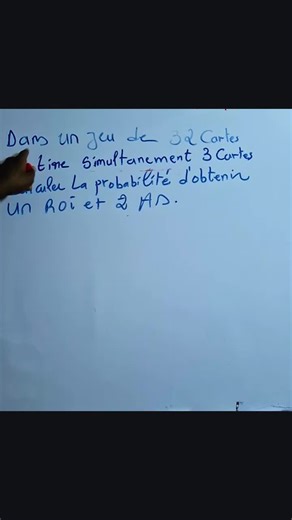 Dans un jeu de 32 Cartes
tire simultanement 3 Cartes
La probabilité d'obtenir
un Roi et 2 AS.